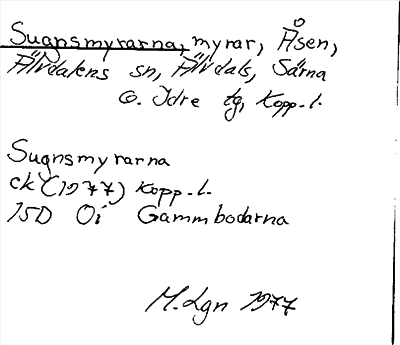 Sugnsmyrarna, myrar, Åsen,
Älvdalens sn, Älvdals, Särna
o. Idre tg, Kopp. l.
Sugnsmyrarna
ek (1977) Kopp. l.
15D Oi Gammbodarna
M. Lgn 1977